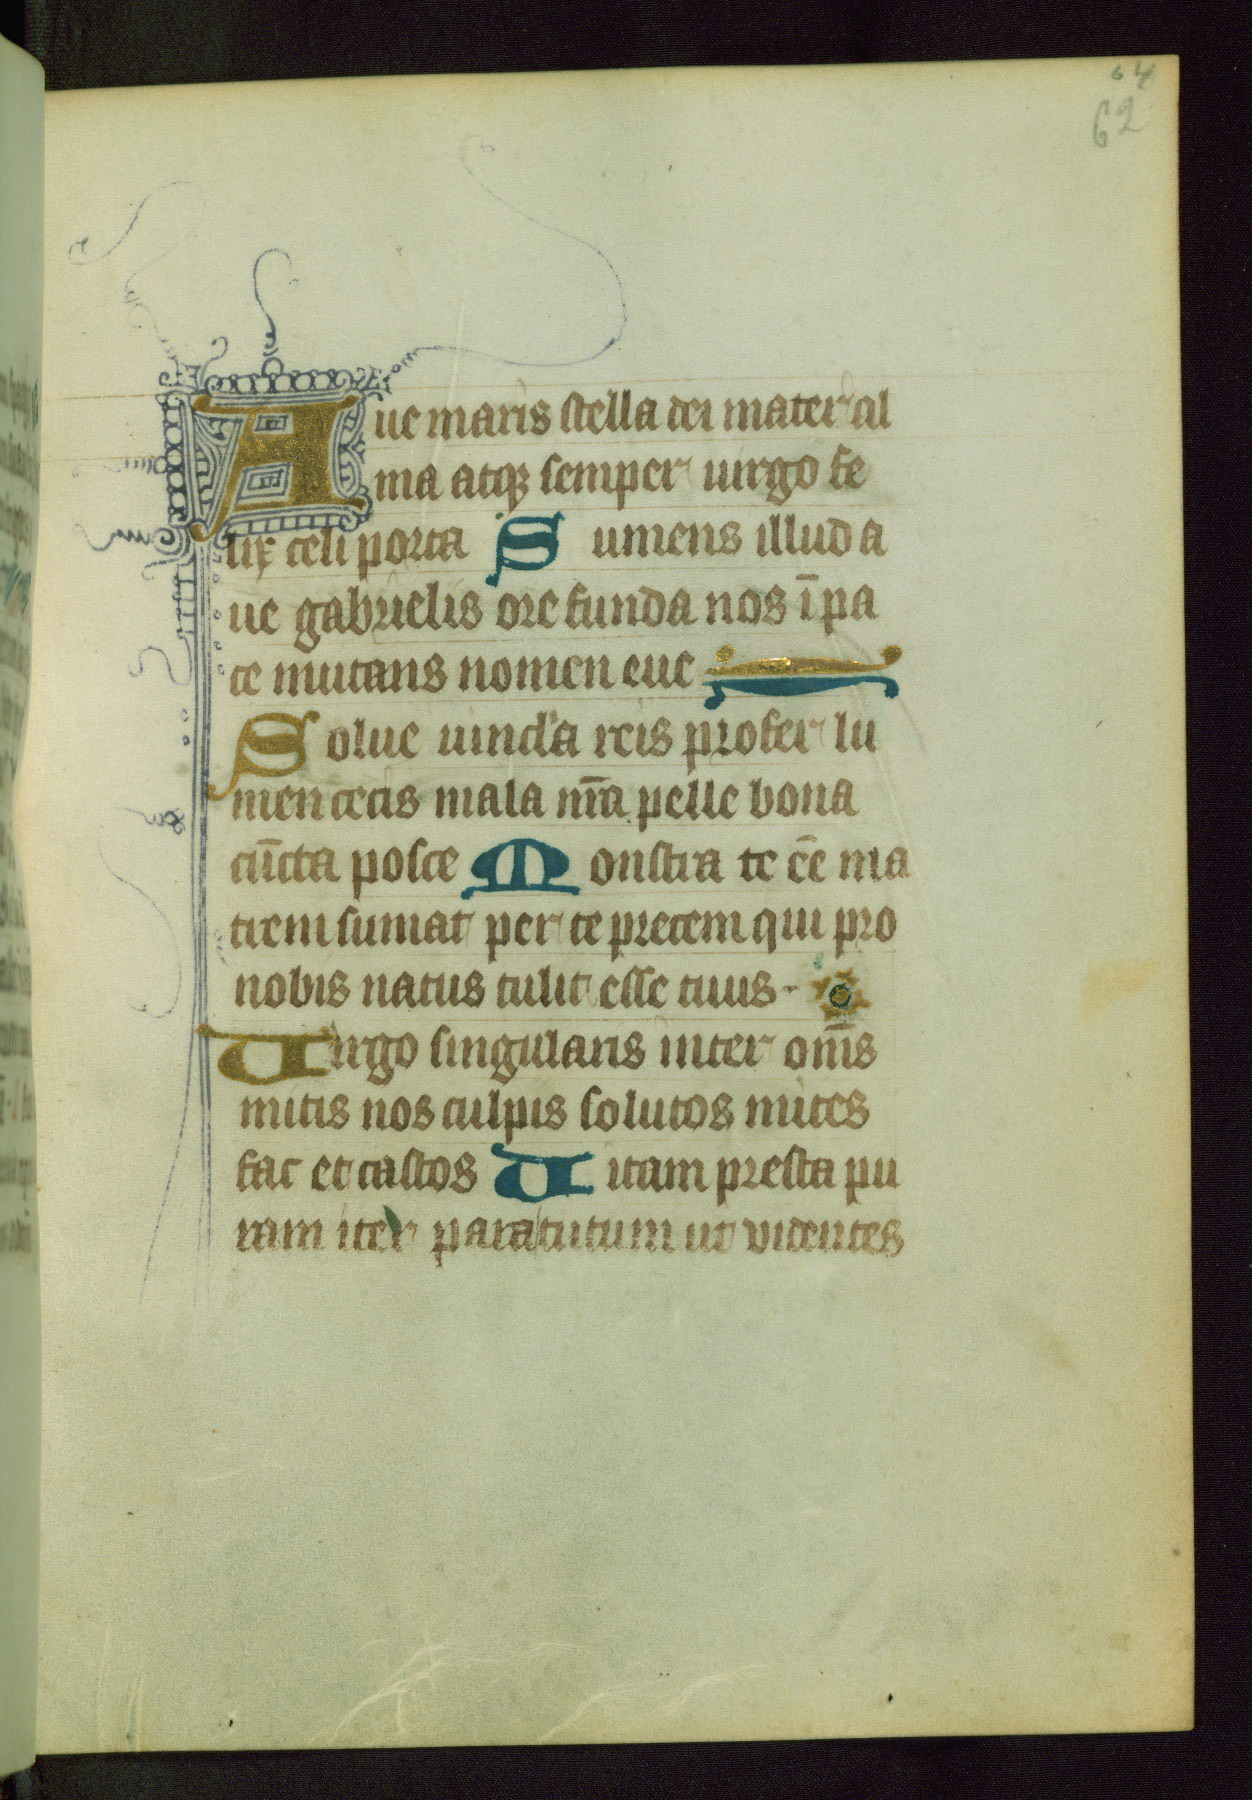 64
62
Aue maris stella dei mater al
ma atqꝫ semper uirgo fe
lix celi porta Sumens illud a
ue gabrielis ore funda nos ī pa
ce mutans nomen eue
Solue uincla reis profer lu
men cecis mala nr̄a pelle bona
cūcta posce Monstra te eē ma
trem sumat per te precem qui pro
nobis natus tulit esse tuus
Uirgo singularis inter om̄s
mitis nos culpis solutos mites
fac et castos Uitam presta pu
ram iter para tutum ut videntes